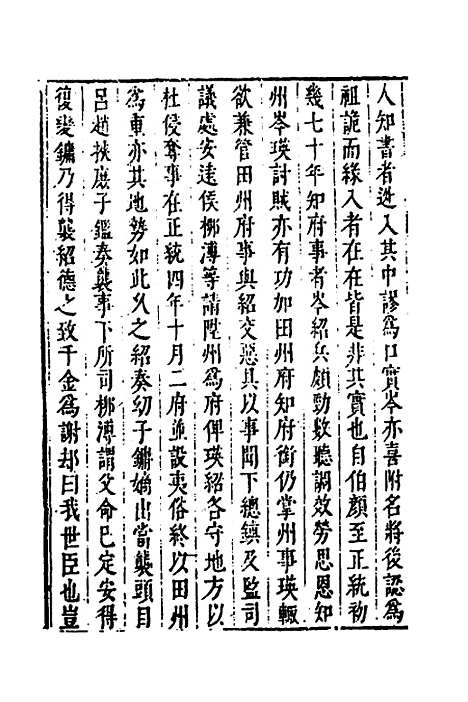 人知書者迯入其中謬為口實岑亦喜附名將後認為
祖詭而緣入者在在皆是非其實也自伯顏至正統初
幾七十年知府事者岑紹兵頗勁數聽調效勞思恩知
州岑瑛討賊亦有功加田州府知府銜仍掌州事瑛輒
欲兼管田州府事與紹交惡具以事聞下總鎮及監司
議處安遠侯柳溥等請陞州為府俾瑛紹各守地方以
杜侵奪事在正統四年十月二府並設夷俗終以田州
為重亦其地勢如此久之紹奏幼子鏞嫡出當襲頭目
呂趙挾庶子鑑奏襲事下所司柳溥謂父命已定安得
復變鏞乃得襲紹德之致千金為謝却曰我世臣也豈